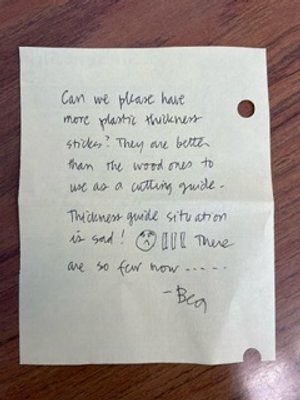 Can we please have
more plastic thickness
sticks? They are better
than the wood ones to
use as a cutting guide.
Thickness guide situation
is sad! There
are so few now .....
- Bea